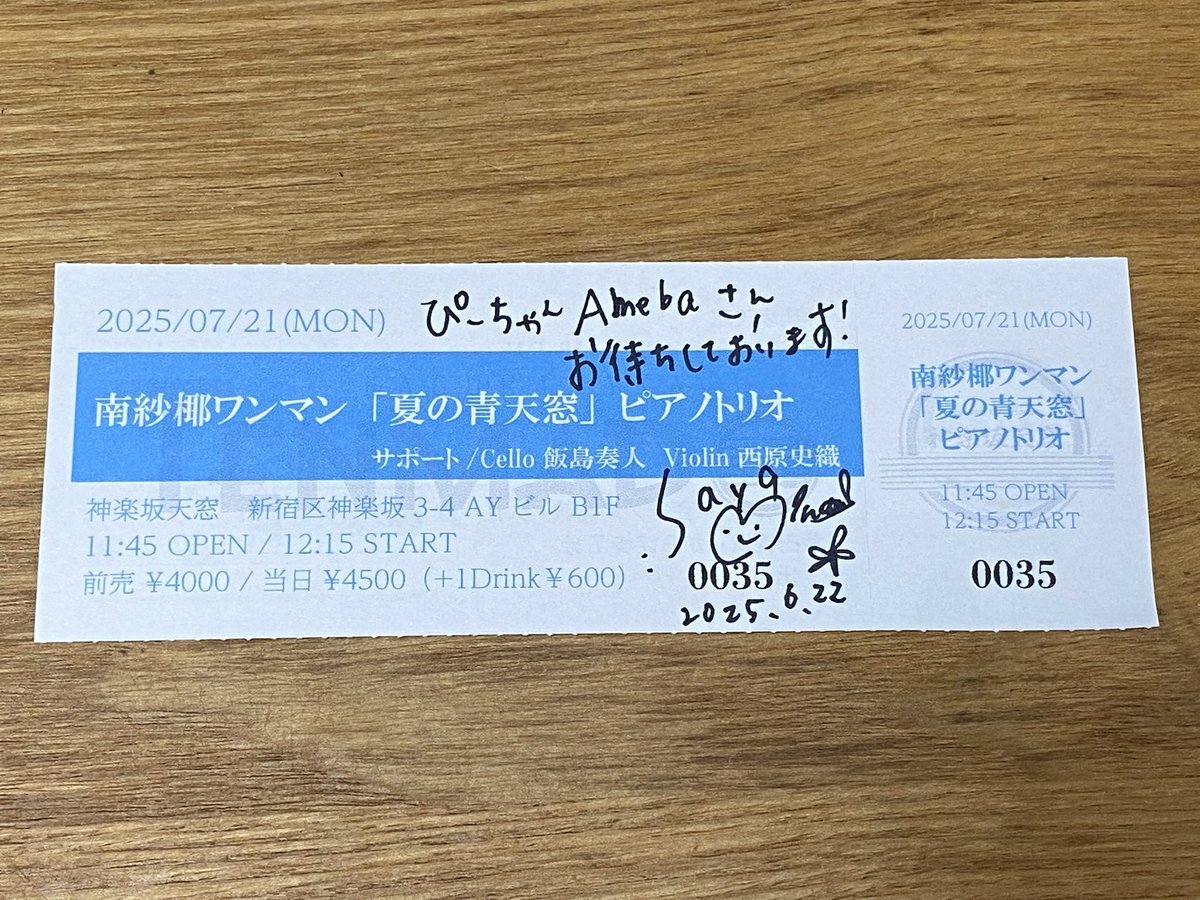 2025/07/21(MON)
ぴーちゃんAmebaさん
お待ちしております!
南紗椰ワンマン「夏の青天窓」ピアノトリオ
サポート/Cello 飯島奏人 Violin 西原史織
神楽坂天窓 新宿区神楽坂 3-4 AY ビル B1F
11:45 OPEN / 12:15 START
前売 ¥4000 / 当日 ¥4500(+1Drink¥600)
Saya
0035
2025.6.22
2025/07/21(MON)
南紗椰ワンマン
「夏の青天窓」
ピアノトリオ
11:45 OPEN
12:15 START
0035